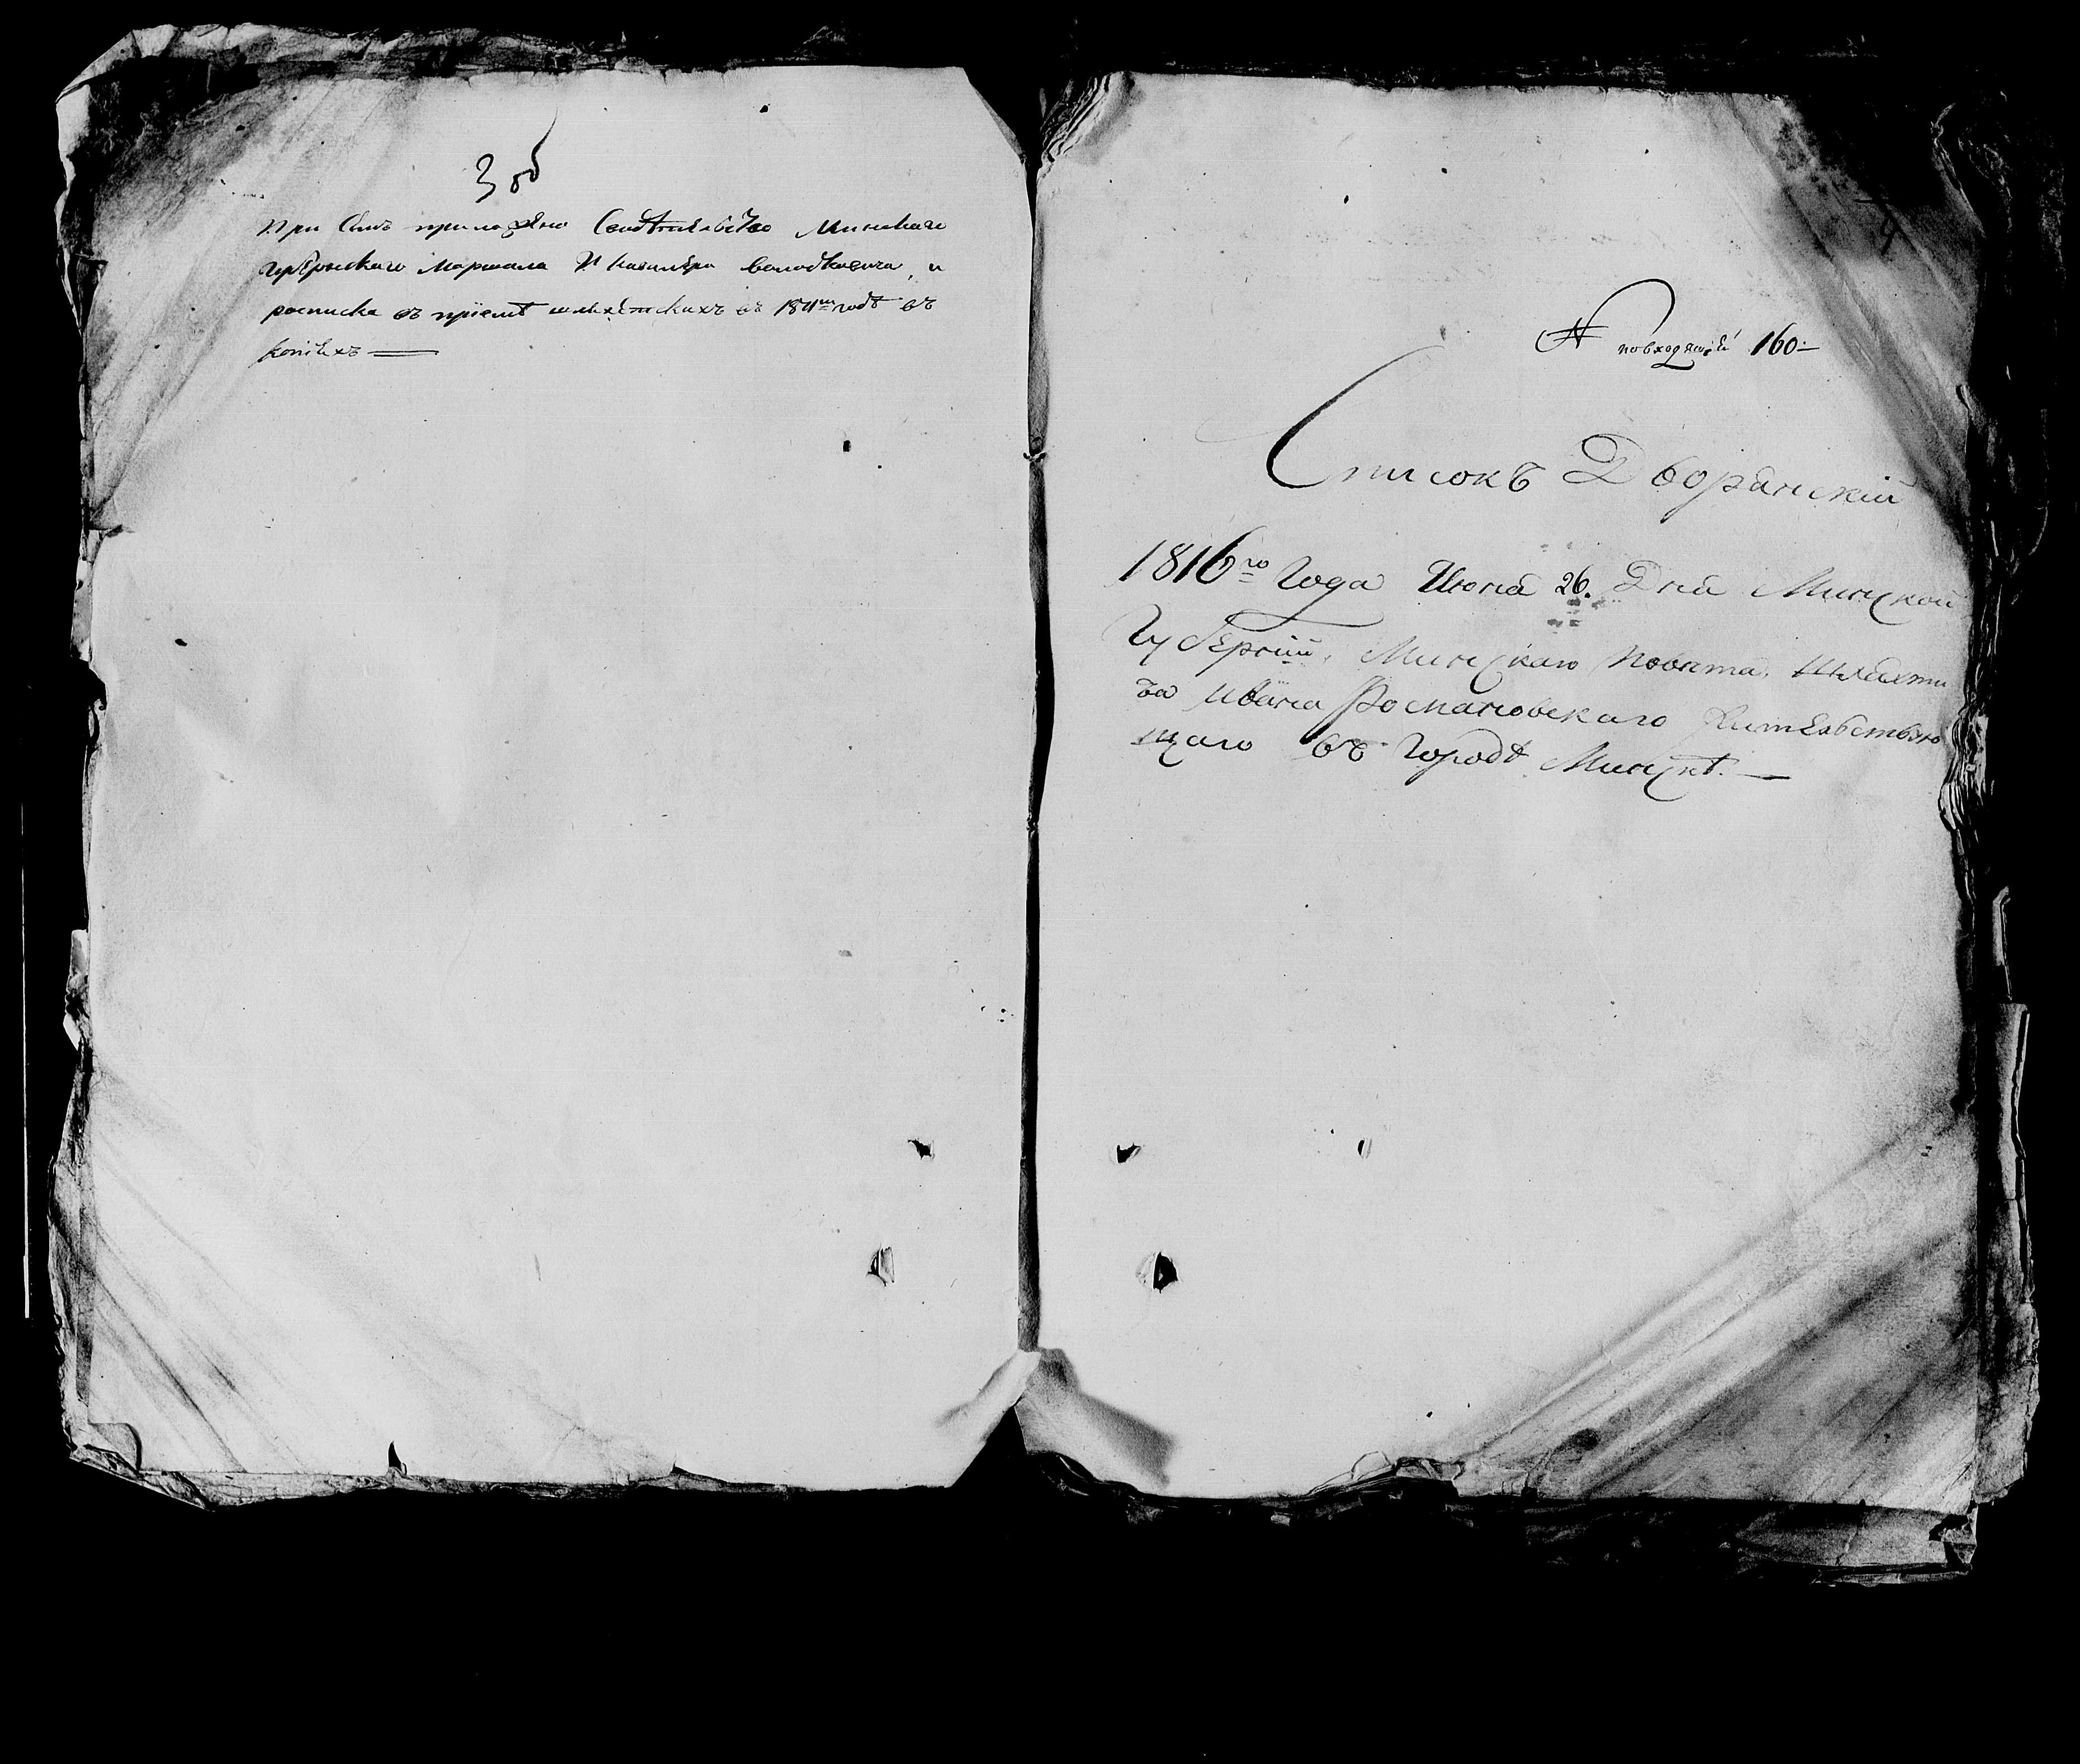 3 об
При семъ приложено Свидѣтельство Минскаго
Губернскаго Маршала И Кавалера Володковича, и
росписка въ пріемѣ шляхетскихъ въ 1811м годѣ въ
копіяхъ
4
N повходящей 160
Списокъ Дворянскій
1816го Года Июня 26. Дня Минской
Губерніи, Минскаго Повята, Шляхти
ча Ивана Романовскаго жительствую
щаго въ Городѣ Минскѣ.